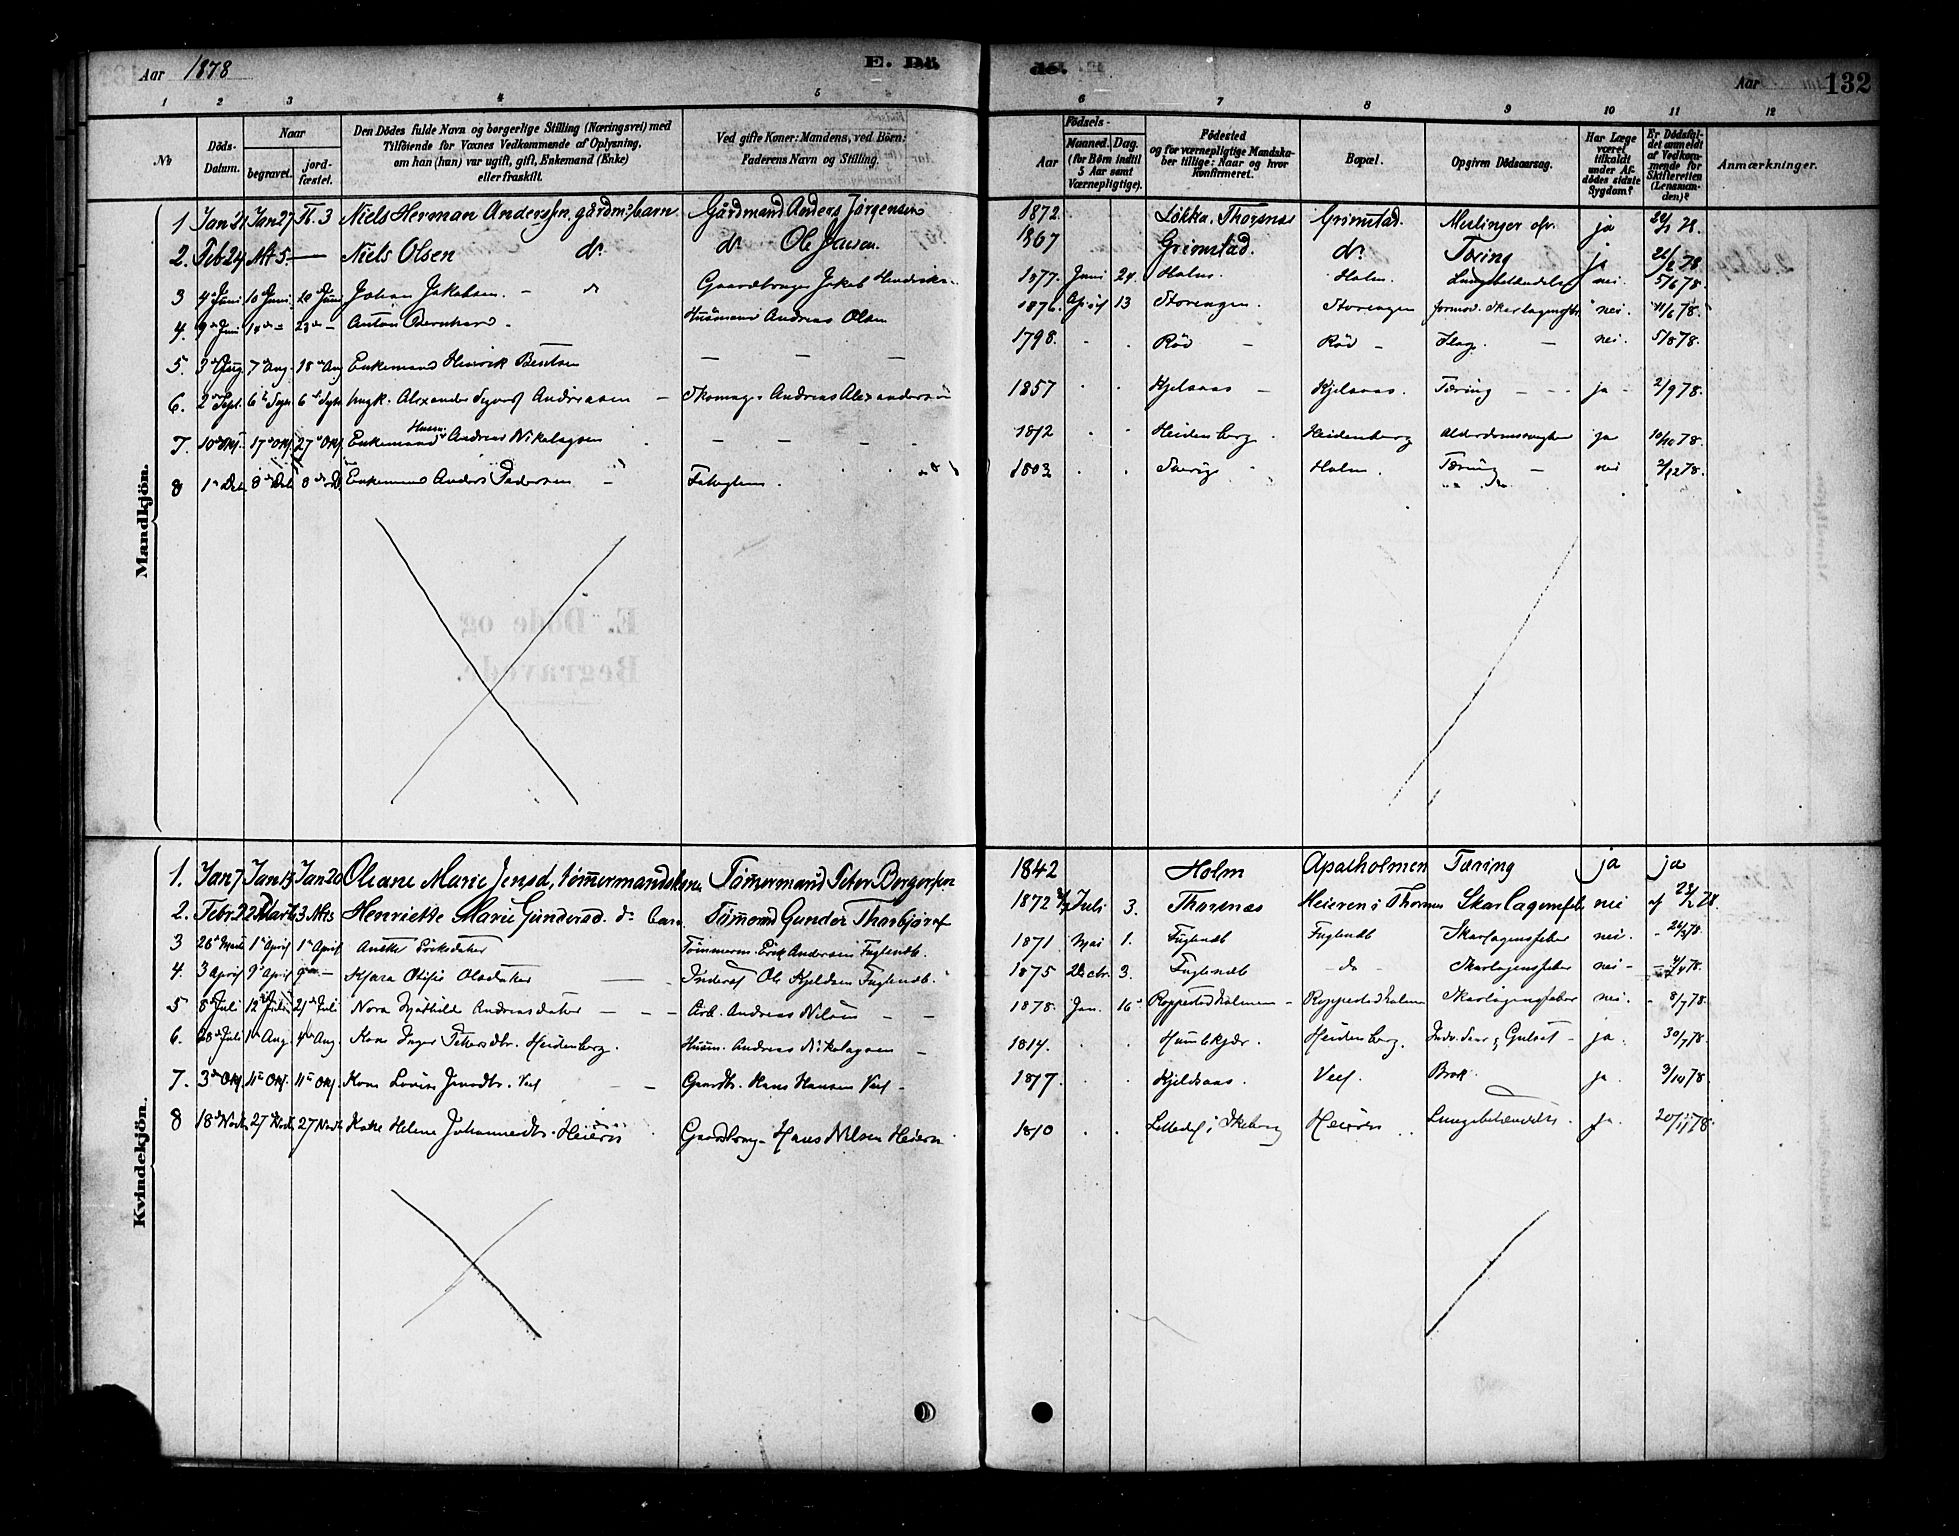 Aar 1878 E. Dö de. Aar 132
1 2 3 4 5 6 7 8 9 10 11 12
No Döds-Datum. Naar begravet. jordfæstet. Den Dödes fulde Navn og borgerlige Stilling (Næringsvei) med Tilföiende for Vœrnes Vedkommende af Oplysning, om han (hun) var ugift, gift, Enkemand (Enke) eller fraskilt. Ved gifte Koner: Mandens, ved Börn: Faderens Navn og Stilling. Födsels- Aar Maaned. Dag. (for Börn indtil 5 Aar samt Værnepligtige). Födested og for værnepligtige Mandskaber tillige: Naar og hvor Konfirmeret. Bopæl. Opgiven Dödsaarsag. Har Læge været tilkaldt under Afdödes sidste Sygdom? Er Dödsfaldet anmeldt af Vedkommende for Skifteretten (Lensmanden)? Anmærkninger.
Mandkjön.
1 Jan 21 Jan 27 Fb. 3 Niels Herman Anderssen, gårdm: barn Gårdmand Anders Jørgensen 1872 Løkka, Thorsnes Grimstad ja
2. Feb 24 Mt 5. — Niels Olsen do do Ole Jansen 1867 Grimstad. do Tæring ja 26/2 78
3 4 Juni 10 Juni 20 Juni Johan Jakobsen. Gaardbruger Jakob Hendriks. 1877. Juni 24. Holm. Holm. Lungebetændelse nei. 5/6 78.
4. 9 Juni 23 Anton Bernhard. Husmand Andreas Olsen 1876. April 13 Storengen. Storengen formod. Skarlagensfbr nei. 11/6 78.
5. 3 Aug 7 Aug. 18 Aug Enkemand Henrik Bentsen — — — 1798. Röd — Röd — nei. 5/8 78.
6. 2 Sept. 6 Sept 6 Sept Ungk. Alexander Andreasen — Skomag. Andreas Alexandersen 1857 Kjelsaas — Kjelsaas. Tæring — ja 2/9 78.
7. 10 Okt. 17 Okt. 27 Okt Enkemand Husm. Andreas Nikolaysen — — — 1812 Heidenberg. Heidenberg Alderdomssvaghed ja 10/10 78.
8 1 Dec. 8 Dec 8 Enkemand Anders Pedersen 1803 Sverige Holm. Tæring — nei 2/12 78.
Kvindekjön.
1. Jan 7 Jan 13 Jan 20 Oleane Marie Jensd, tømmermandskone Tømmermand Peter Borgersen 1842 Holm Apalholmen Tæring ja ja
2. Febr. 22 Marts 3 Mts Henriette Marie Gundersd. do barn Tömmermand Gunder Thorbjörnsen 1872 Juli 3. Thorsnes Heieren i Thorsnes Skarlagensfeber nei 28/2 78
3 26 Marts 1 April 1 April Eriksdatter Tömmerm. Erik Andersen Fuglevik. 1871. Mai 1. Fuglevik Fuglevik Skarlagensfeber nei. 26/3 78.
4. 3 April 9 April 9 — Klara Olufie Olsdatter — Inderst Ole Kjeldsen Fuglevik. 1875 Decbr. 3. Fuglevik — do — Skarlagensfeber nei — 4/4 78.
5 8 Juli 12 Juli 21 Juli Nora Mathilde Andreasdatter — — — Arb. Andreas Nilsen — — 1878. Jan. 16 Roppestadholmen — Roppestadholmen Skarlagensfeber nei. — 8/7 78.
6. 28 Juli 1 Aug 4 Aug. Kone Inger Petersdtr. Heidenberg. Husm. Andreas Nikolaysen — 1814. Humlekjær. Heidenberg. Gulsot — ja. 30/7 78.
7. 3 Okt. 11 Okt. 11 Okt. Kone Lovise — — Gaardbr. Hans Hansen — 1817. Kjeldsaas. Brok ja. 3/10 78.
8 18 Novbr 27 Novbr 27 Novbr Kone Helene Johannesdtr. Heieren Gaardbrug. Hans Nilsen Heieren 1810 i Skeberg Heieren Lungebetændelse. ja. 20/11 78.